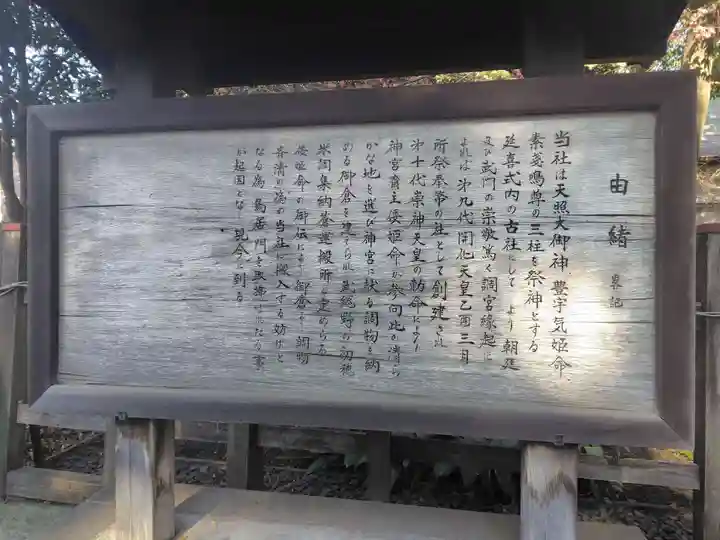 由緒
略記
当社は天照大御神 豊宇気姫命、
素戔嗚尊の三柱を祭神とする
延喜式内の古社にして より朝廷
及び武門の崇敬篤く調宮縁起に
よれば 第九代開化天皇乙酉三月
所祭奉幣の社として創建され
第十代崇神天皇の勅命により
神宮斎主倭姫命が参向此の清ら
かな地を選び神宮に献る調物を納
める御倉を建てられ武総野の初穂
米調集納蒼運搬所と定めらる
倭姫命の御伝により御倉より調物
斎清の為の当社に搬入する妨げと
なる為 鳥居 門を取拂はれたる事
が起因となり現今に到る